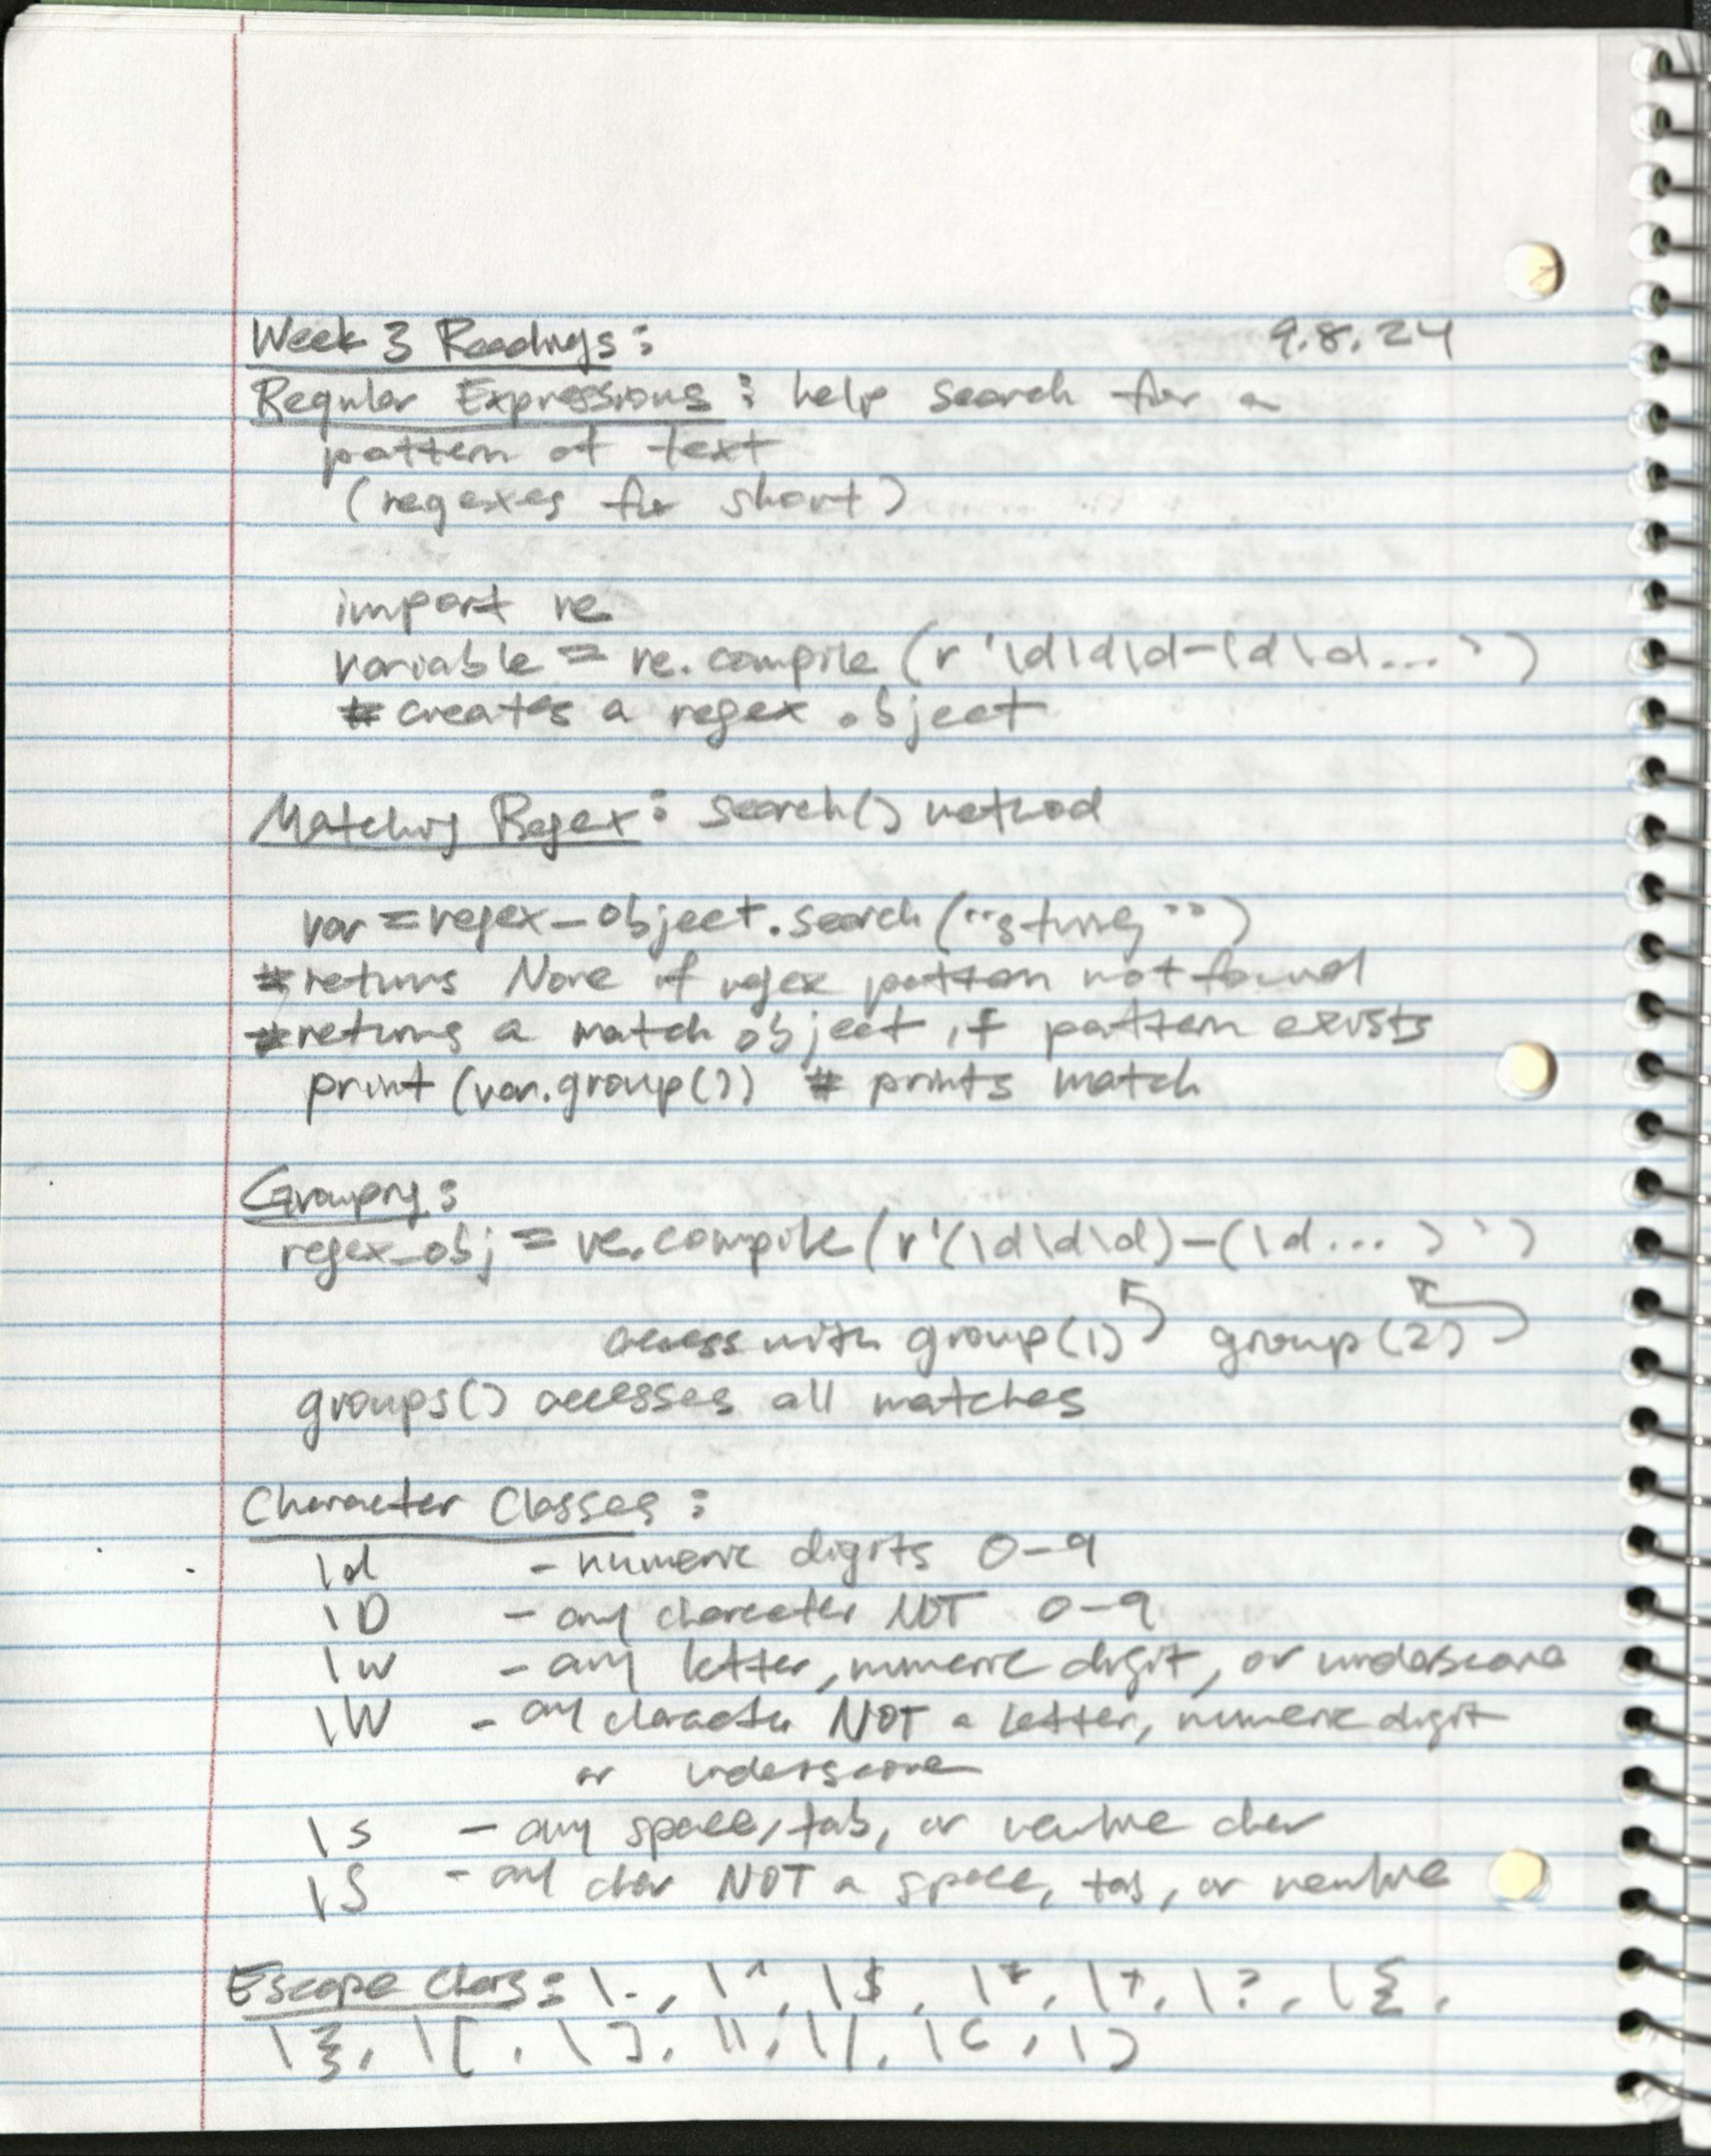 Week 3 Readings: 9.8.24
Regular Expressions: help search for a
pattern of text
(regexes for short)
import re
variable = re.compile(r'\d\d\d-\d\d...')
# creates a regex object
Matching Regex: search() method
var = regex_object.search("string")
# returns None if regex pattern not found
# returns a match object if pattern exists
print(var.group()) # prints match
Grouping:
regex_obj = re.compile(r'(\d\d\d)-(\d...)')
access with group(1) group(2)
groups() accesses all matches
Character Classes:
\d - numeric digits 0-9
\D - any character NOT 0-9
\w - any letter, numeric digit, or underscore
\W - any character NOT a letter, numeric digit
or underscore
\s - any space, tab, or newline char
\S - any char NOT a space, tab, or newline
Escape Chars: \., \^, \$, \*, \+, \?, \{,
\}, \[, \], \\, \|, \(, \)